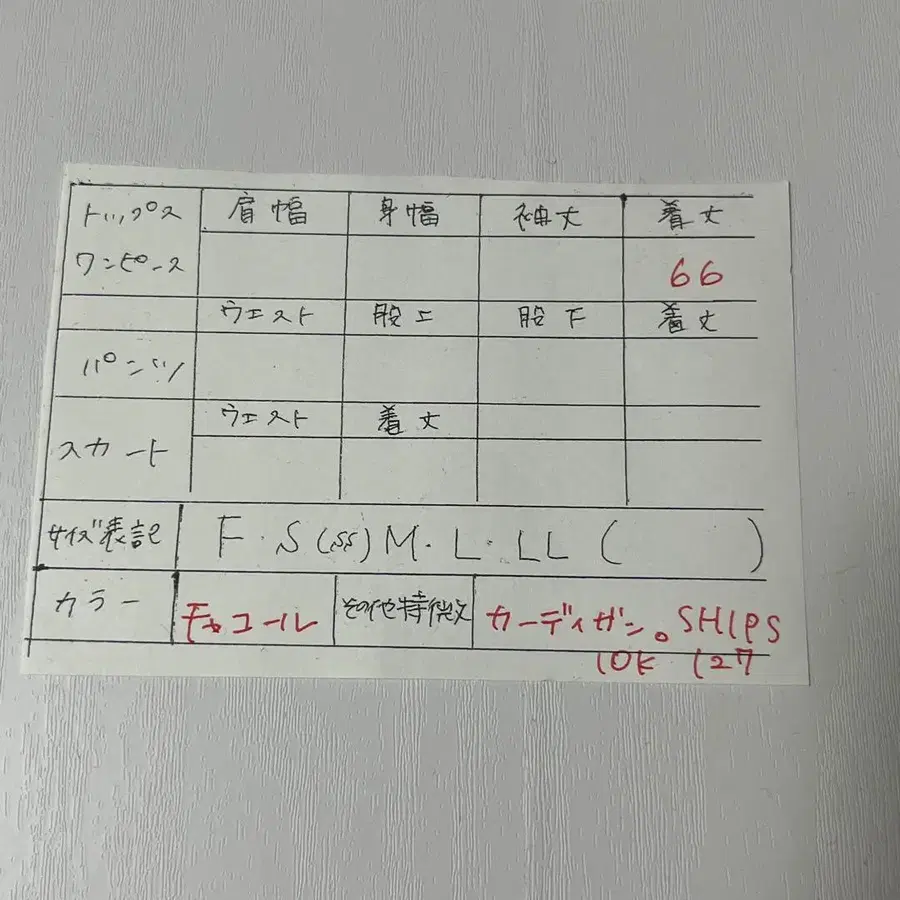 トップス 肩幅 身幅 袖丈 着丈
ワンピース 66
ウエスト 股上 股下 着丈
パンツ
ウエスト 着丈
スカート
サイズ表記 F・S(SS)M・L・LL( )
カラー チャコール その他特徴 カーディガン。SHIPS
10K 127